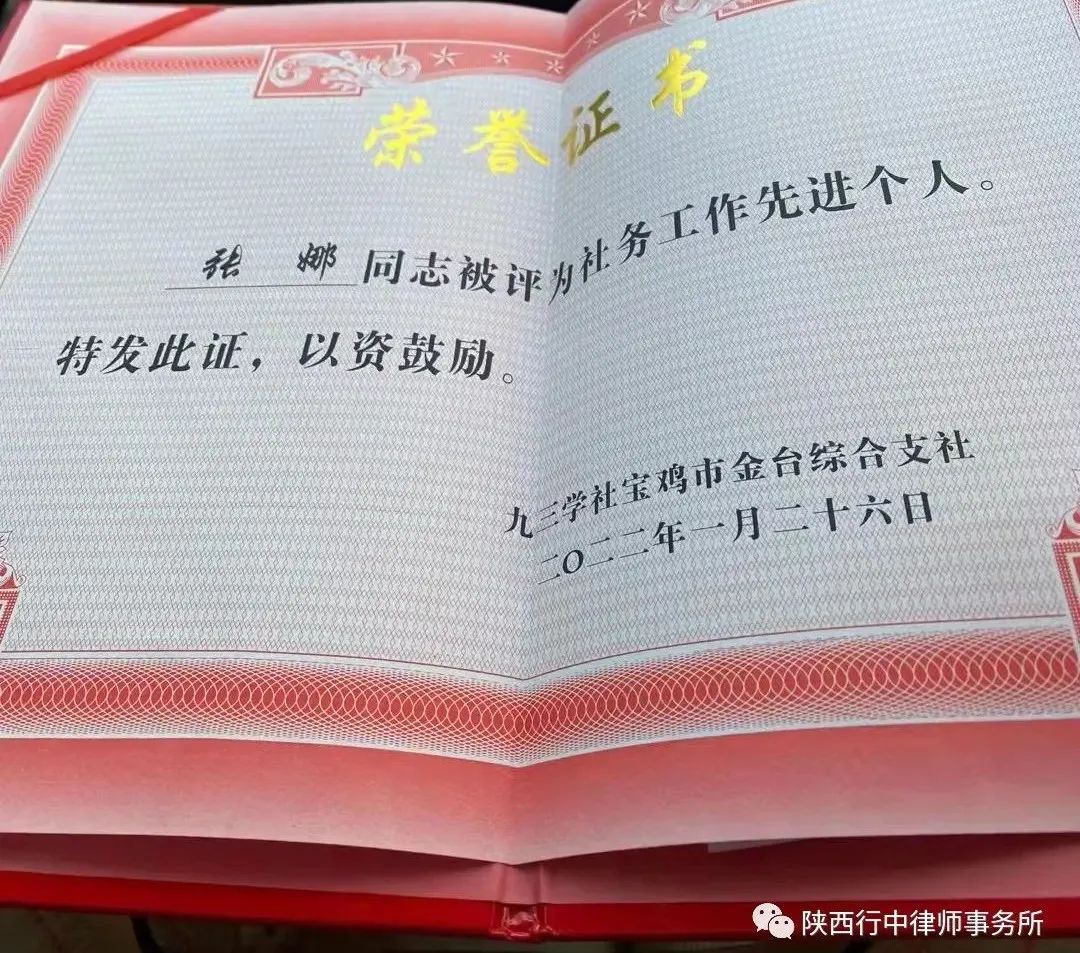 荣誉证书
张娜同志被评为社务工作先进个人。
特发此证，以资鼓励。
九三学社宝鸡市金台综合支社
二〇二二年一月二十六日
陕西行中律师事务所